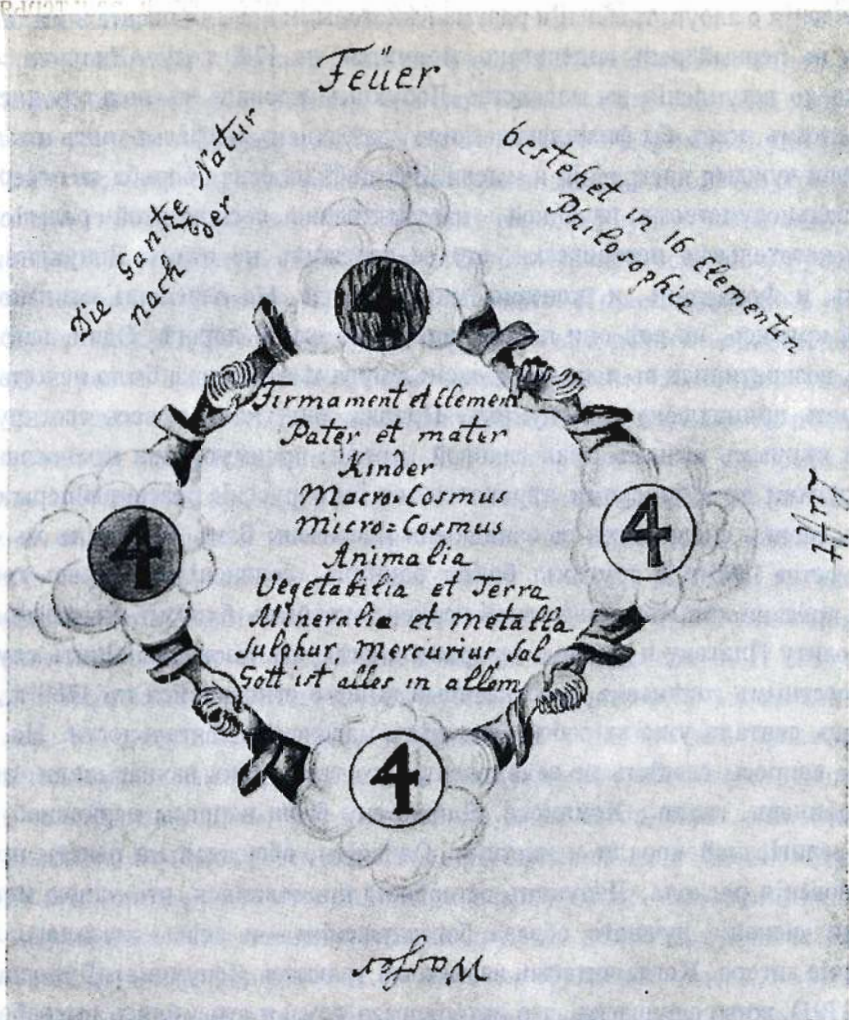 Feüer
Die Gantze Natur
nach der
bestehet in 16 Elementen
Philosophie
4
Firmament et Element
Pater et mater
Kinder
Macro=Cosmus
Micro=Cosmus
Animalia
Vegetabilia et Terra
Mineralia et Metalla
Sulphur, Mercurius, Sal,
Gott ist alles in allem
4
4
4
Wasser